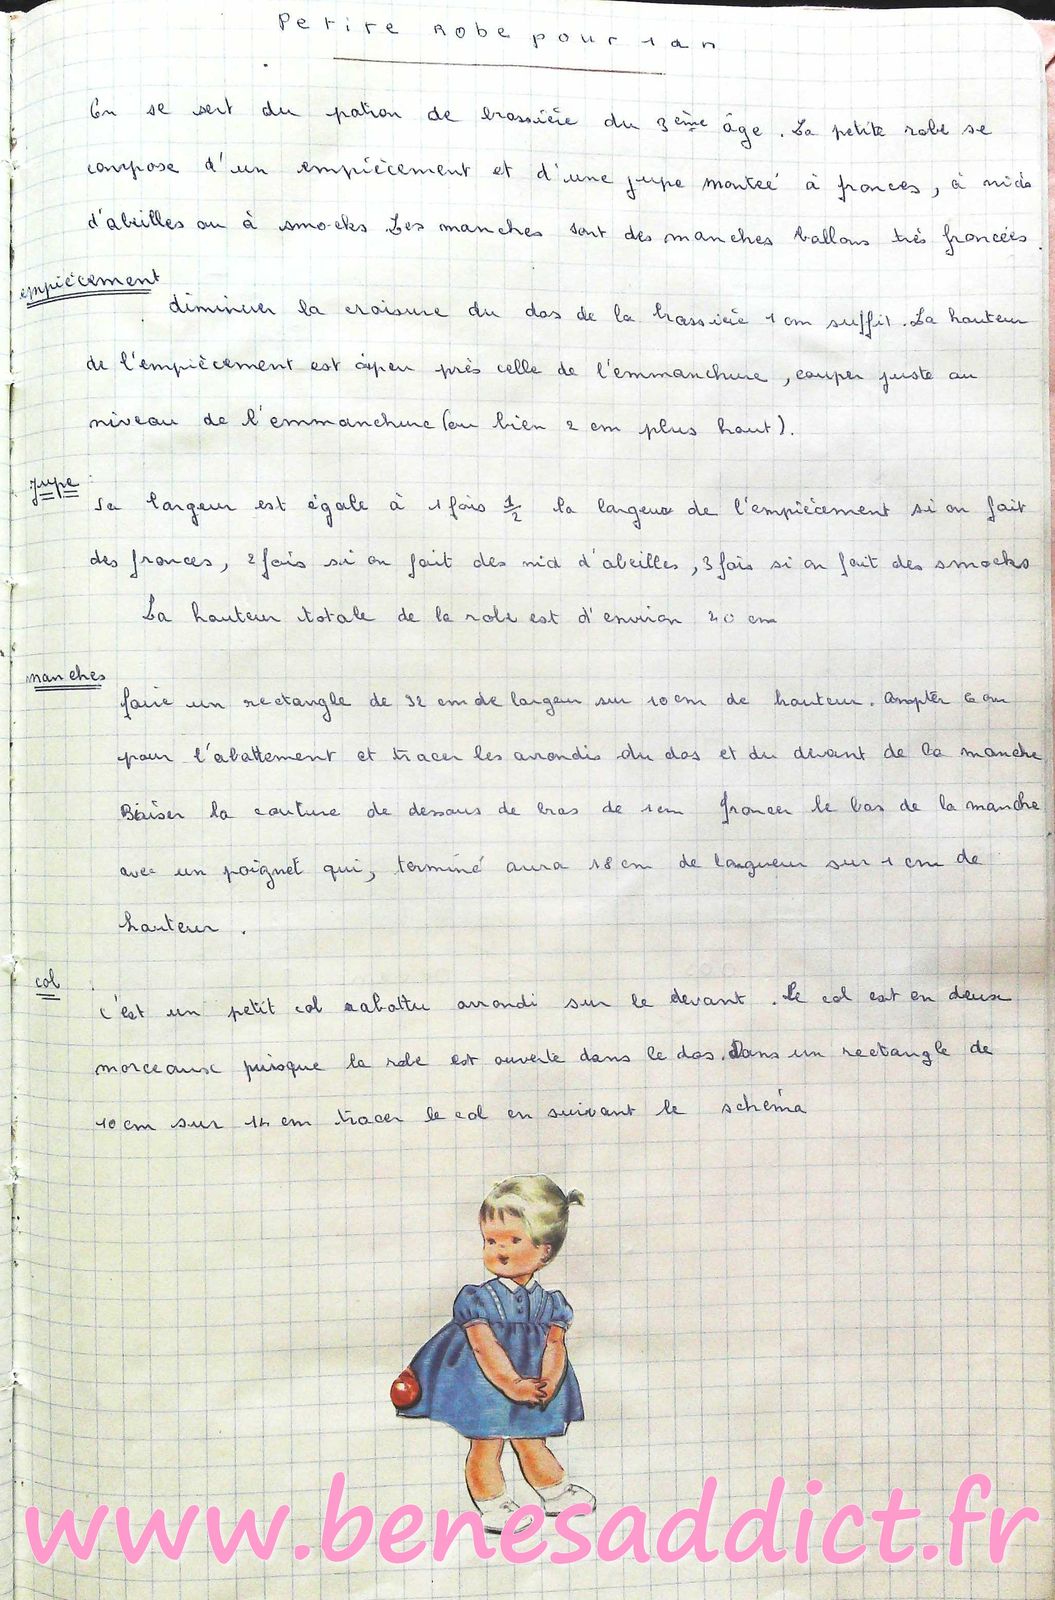 Petite Robe pour 1 an
On se sert du patron de brassière du 3ème âge. La petite robe se
compose d'un empiècement et d'une jupe montée à fronces, à nids
d'abeilles ou à smocks. Les manches sont des manches ballons très froncées.
empiècement
diminuer la croisure du dos de la brassière 1 cm suffit. La hauteur
de l'empiècement est à peu près celle de l'emmanchure, couper juste au
niveau de l'emmanchure (ou bien 2 cm plus haut).
Jupe
Sa largeur est égale à 1 fois 1/2 la largeur de l'empiècement si on fait
des fronces, 2 fois si on fait des nid d'abeilles, 3 fois si on fait des smocks
La hauteur totale de la robe est d'environ 40 cm
manches
faire un rectangle de 32 cm de largeur sur 10 cm de hauteur. Compter 6 cm
pour l'abattement et tracer les arrondis du dos et du devant de la manche
Biaiser la couture de dessous de bras de 1 cm froncer le bas de la manche
avec un poignet qui, terminé aura 18 cm de longueur sur 1 cm de
hauteur.
col
c'est un petit col rabattu arrondi sur le devant. Le col est en deux
morceaux puisque la robe est ouverte dans le dos. Dans un rectangle de
10 cm sur 14 cm tracer le col en suivant le schéma
www.benesaddict.fr